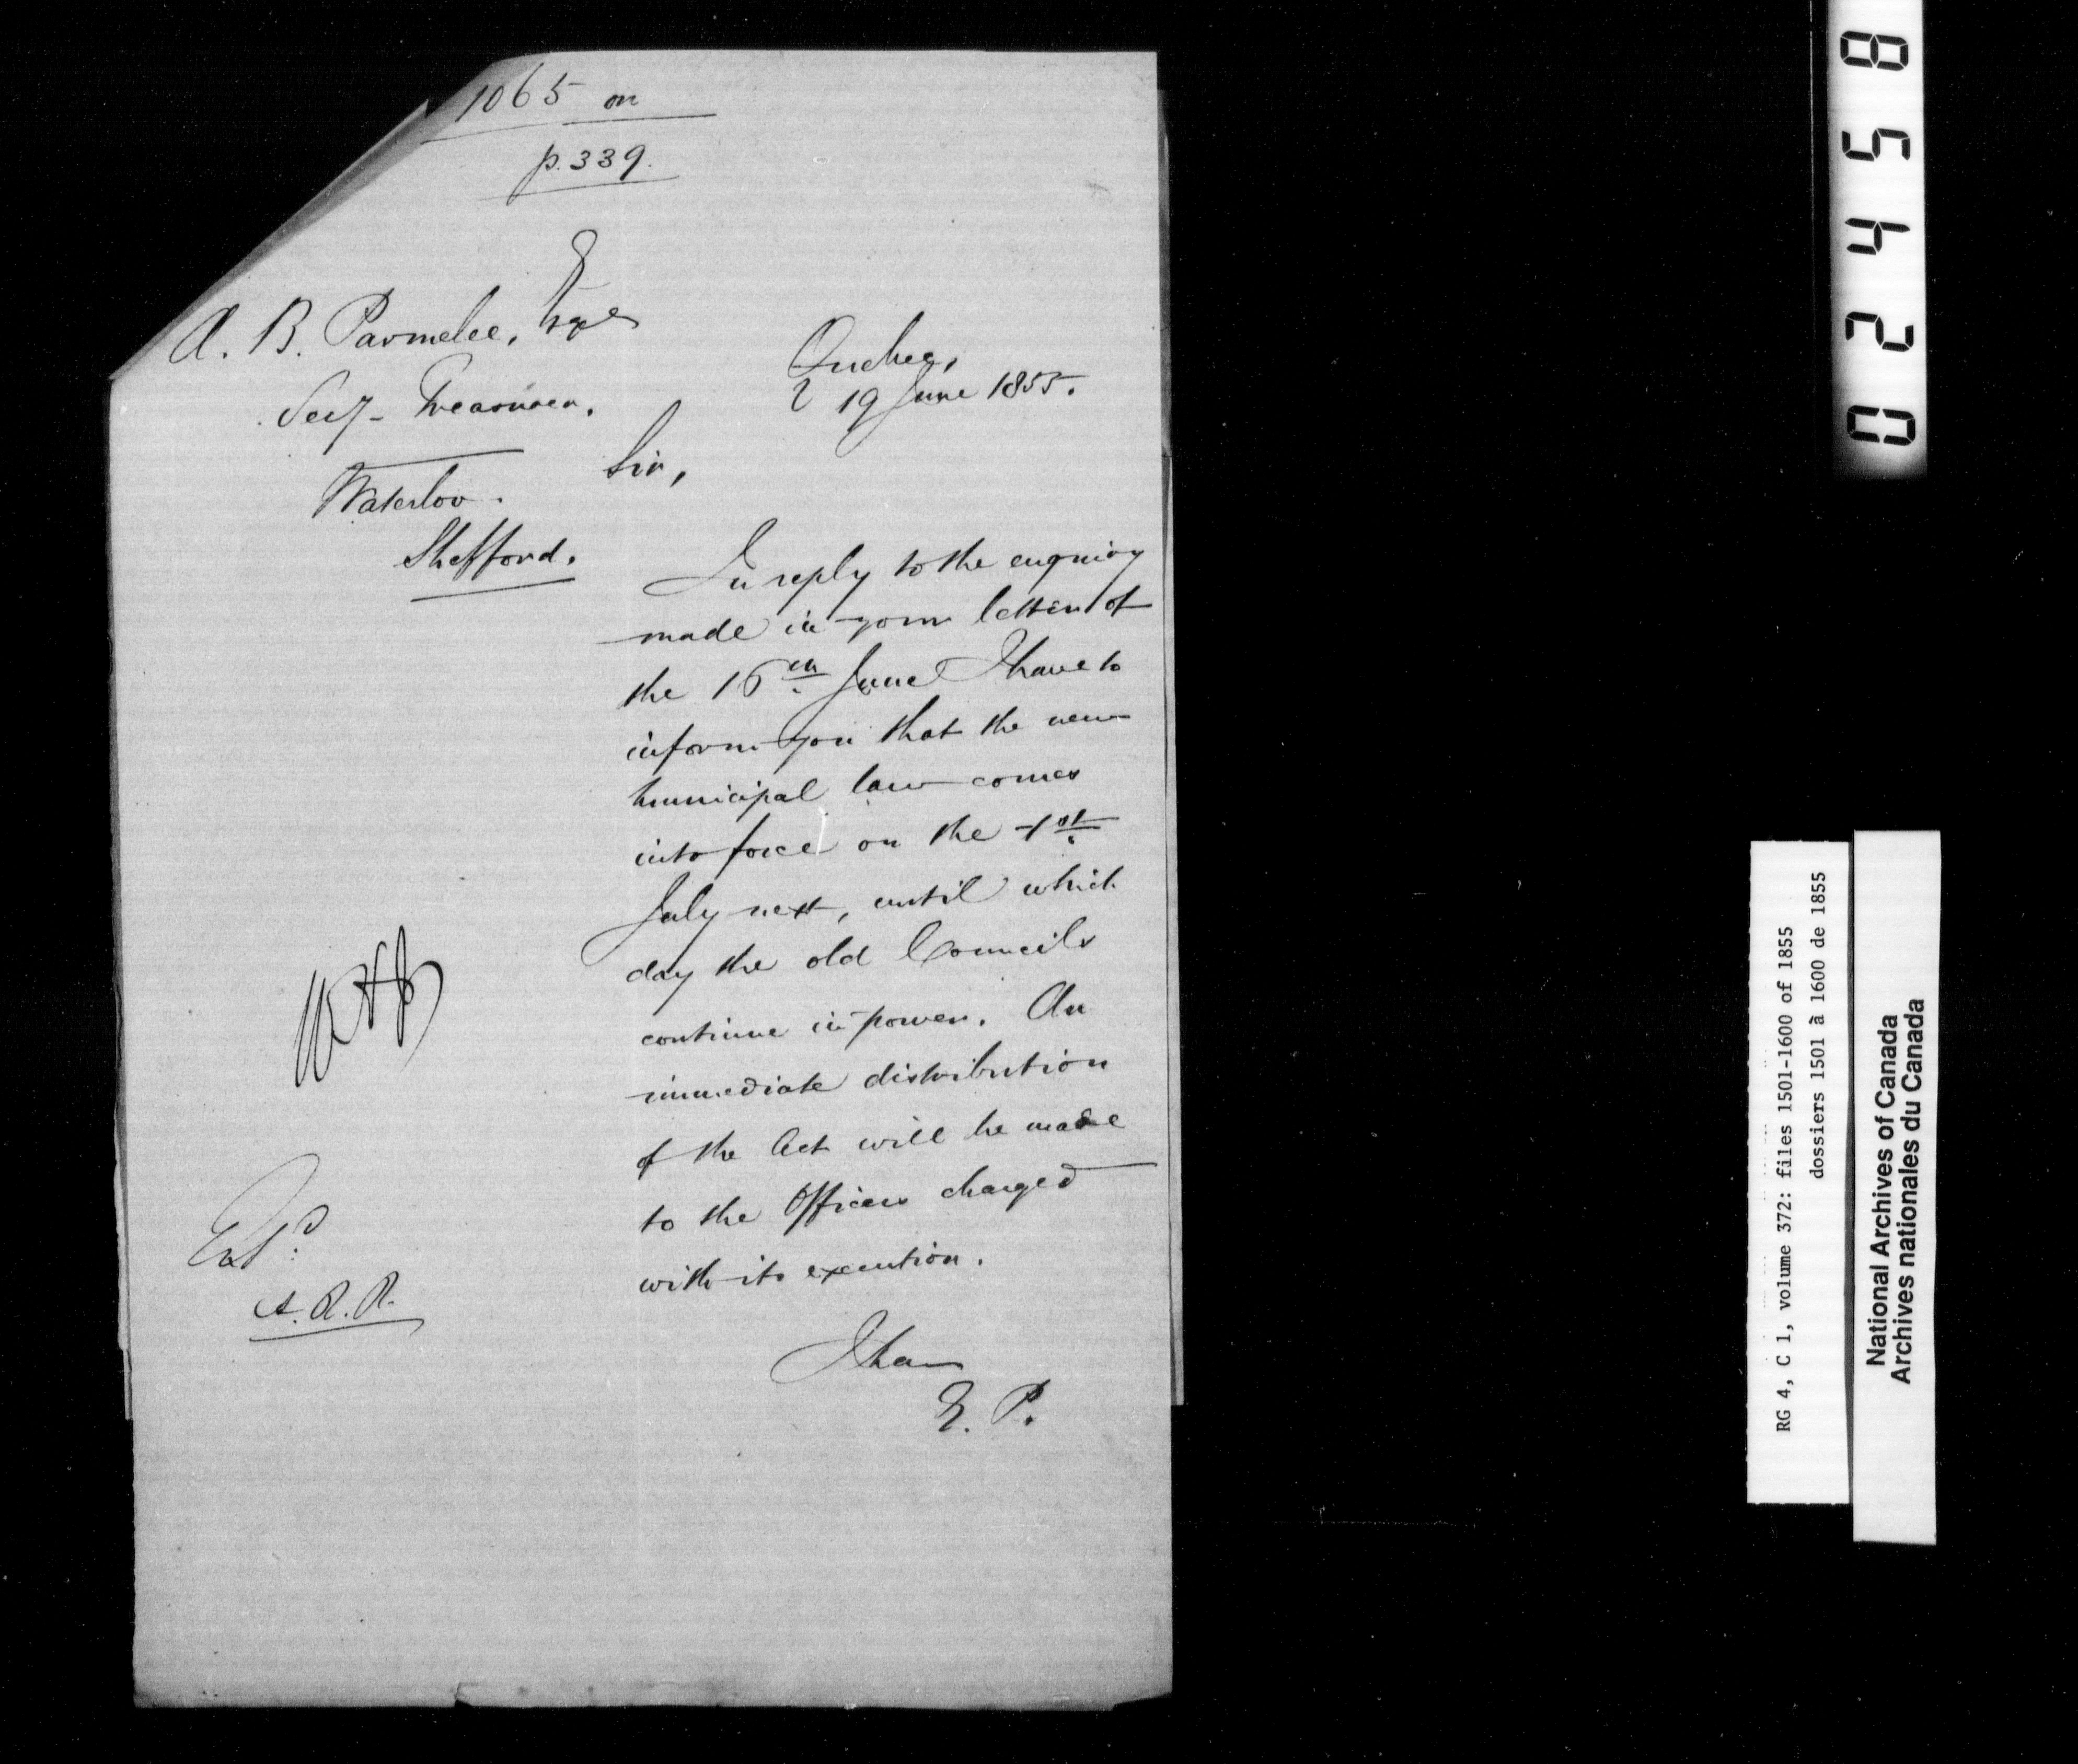 1065 on
p. 339.
A. B. Parmelee, Esqre
Secy- Treasurer.
Waterloo.
Shefford.
Quebec,
19 June 1855.
Sir,
In reply to the enquiry
made in your letter of
the 16th June I have to
inform you that the new
municipal law comes
into force on the 1st
July next, until which
day the old Councils
continue in power. An
immediate distribution
of the Act will be made
to the Officers charged
with its execution.
I have
E. P.
Entd.
A. R. R.
02458
RG 4, C 1, volume 372: files 1501-1600 of 1855
dossiers 1501 à 1600 de 1855
National Archives of Canada
Archives nationales du Canada